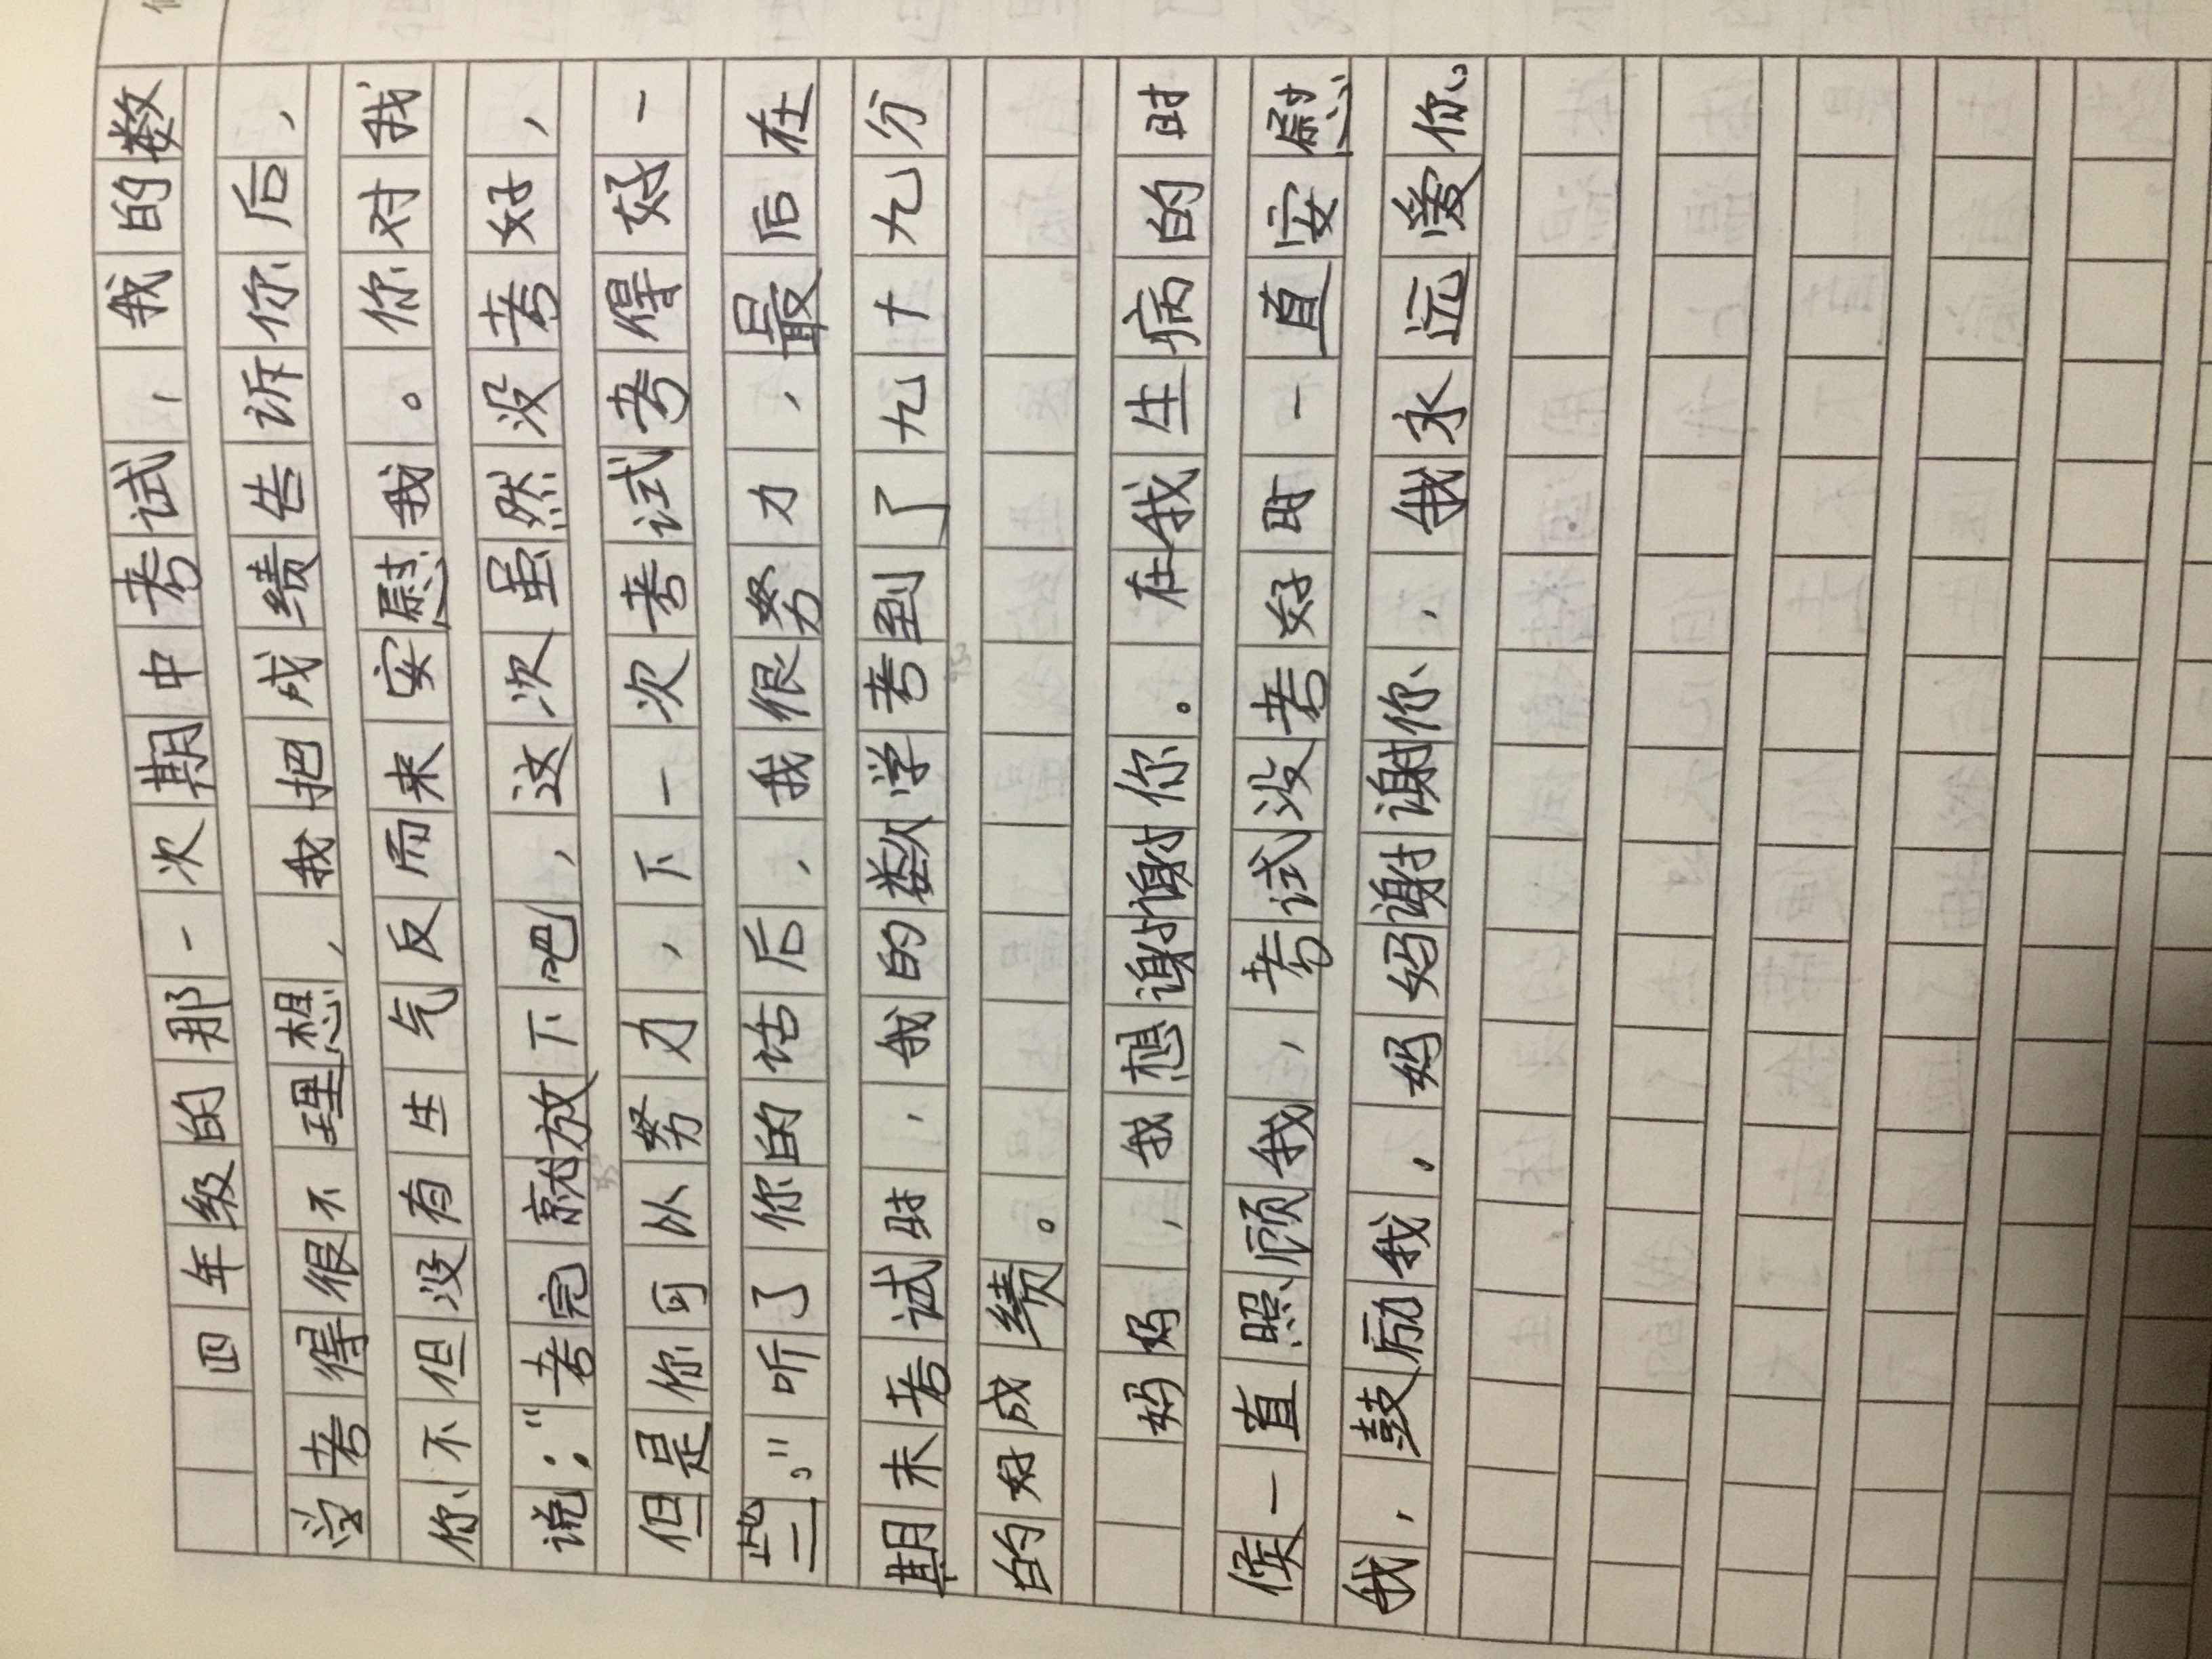 四年级的那一次期中考试，我的数
学考得很不理想，我把成绩告诉你后，
你不但没有生气反而来安慰我。你对我
说：“考完就放下吧，这次虽然没考好，
但是你可以努力，下一次考试考得好一
些。”听了你的话后，我很努力，最后在
期末考试时，我的数学考到了九十九分
的好成绩。
妈妈，我想谢谢你。在我生病的时
候一直照顾我，考试没考好时一直安慰
我，鼓励我，妈妈谢谢你，我永远爱你。